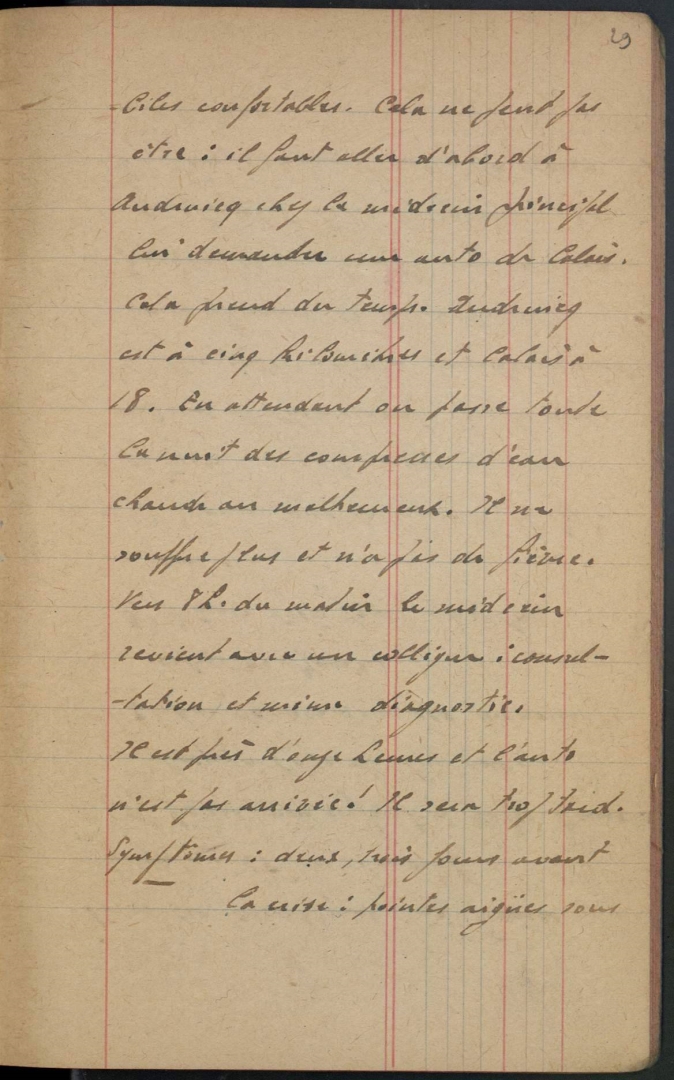 29
-biles confortables. Cela ne peut pas
être : il faut aller d'abord à
Audruicq chez le médecin principal
lui demander une auto de Calais.
Cela prend du temps. Audruicq
est à cinq kilomètres et Calais à
18. En attendant on passe toute
la nuit des compresses d'eau
chaude au malheureux. Il ne
souffre plus et n'a pas de fièvre.
Vers 8 h. du matin le médecin
revient avec un collègue : consul-
-tation et même diagnostic.
Il est près d'onze heures et l'auto
n'est pas arrivée ! Il sera trop tard.
Symptômes : deux, trois jours avant
la crise : pointes aigües sous